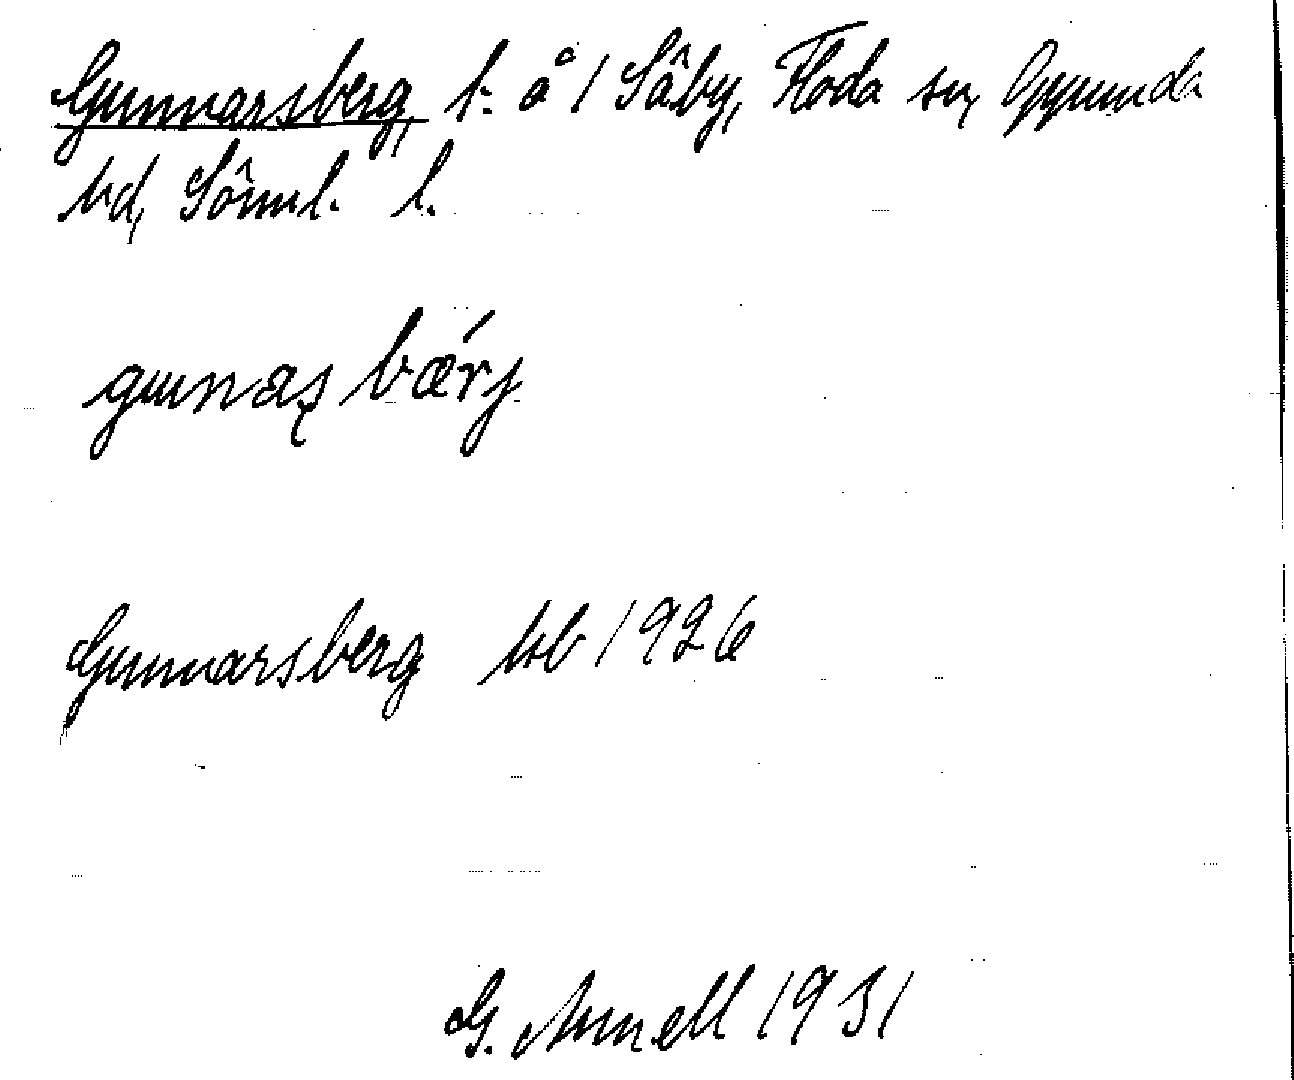 Gunnarsberg, t. å 1 Säby, Floda sn, Oppunda
hd, Sörml. l.
gunnaʂ bærj
Gunnarsberg hb 1926
G. Arnell 1931